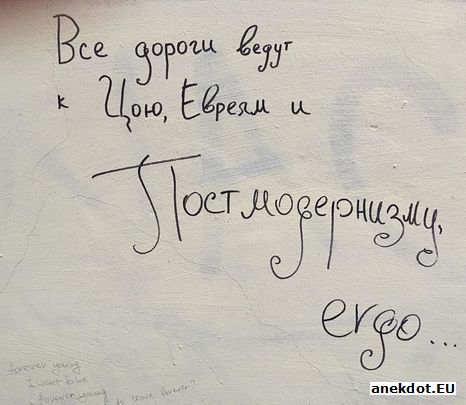 Все дороги ведут
к Цою, Евреям и
Постмодернизму,
ergo...
forever young
I want to be
forever young
leave forever?
anekdot.EU